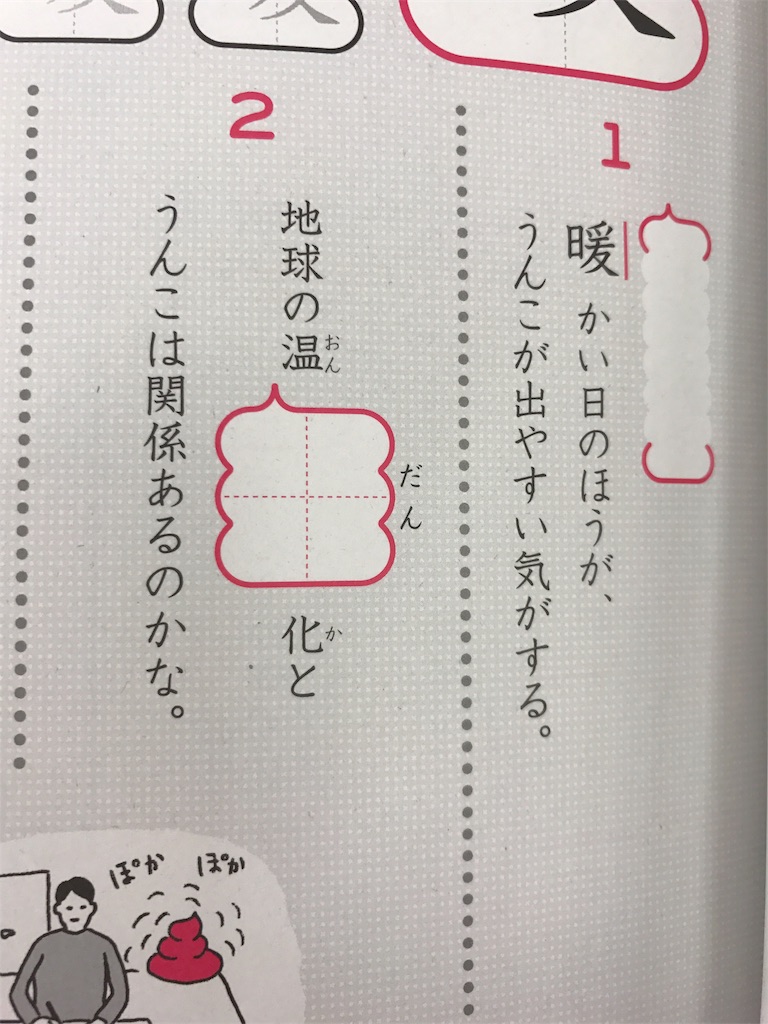 1
暖かい日のほうが、
うんこが出やすい気がする。
2
地球の温
おん
だん
化と
か
うんこは関係あるのかな。
ぽか
ぽか